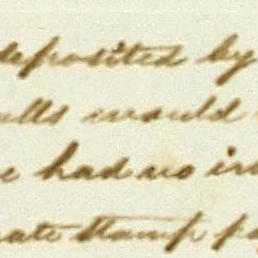 deposited by
ulls would
e had no in
rate stamp pa